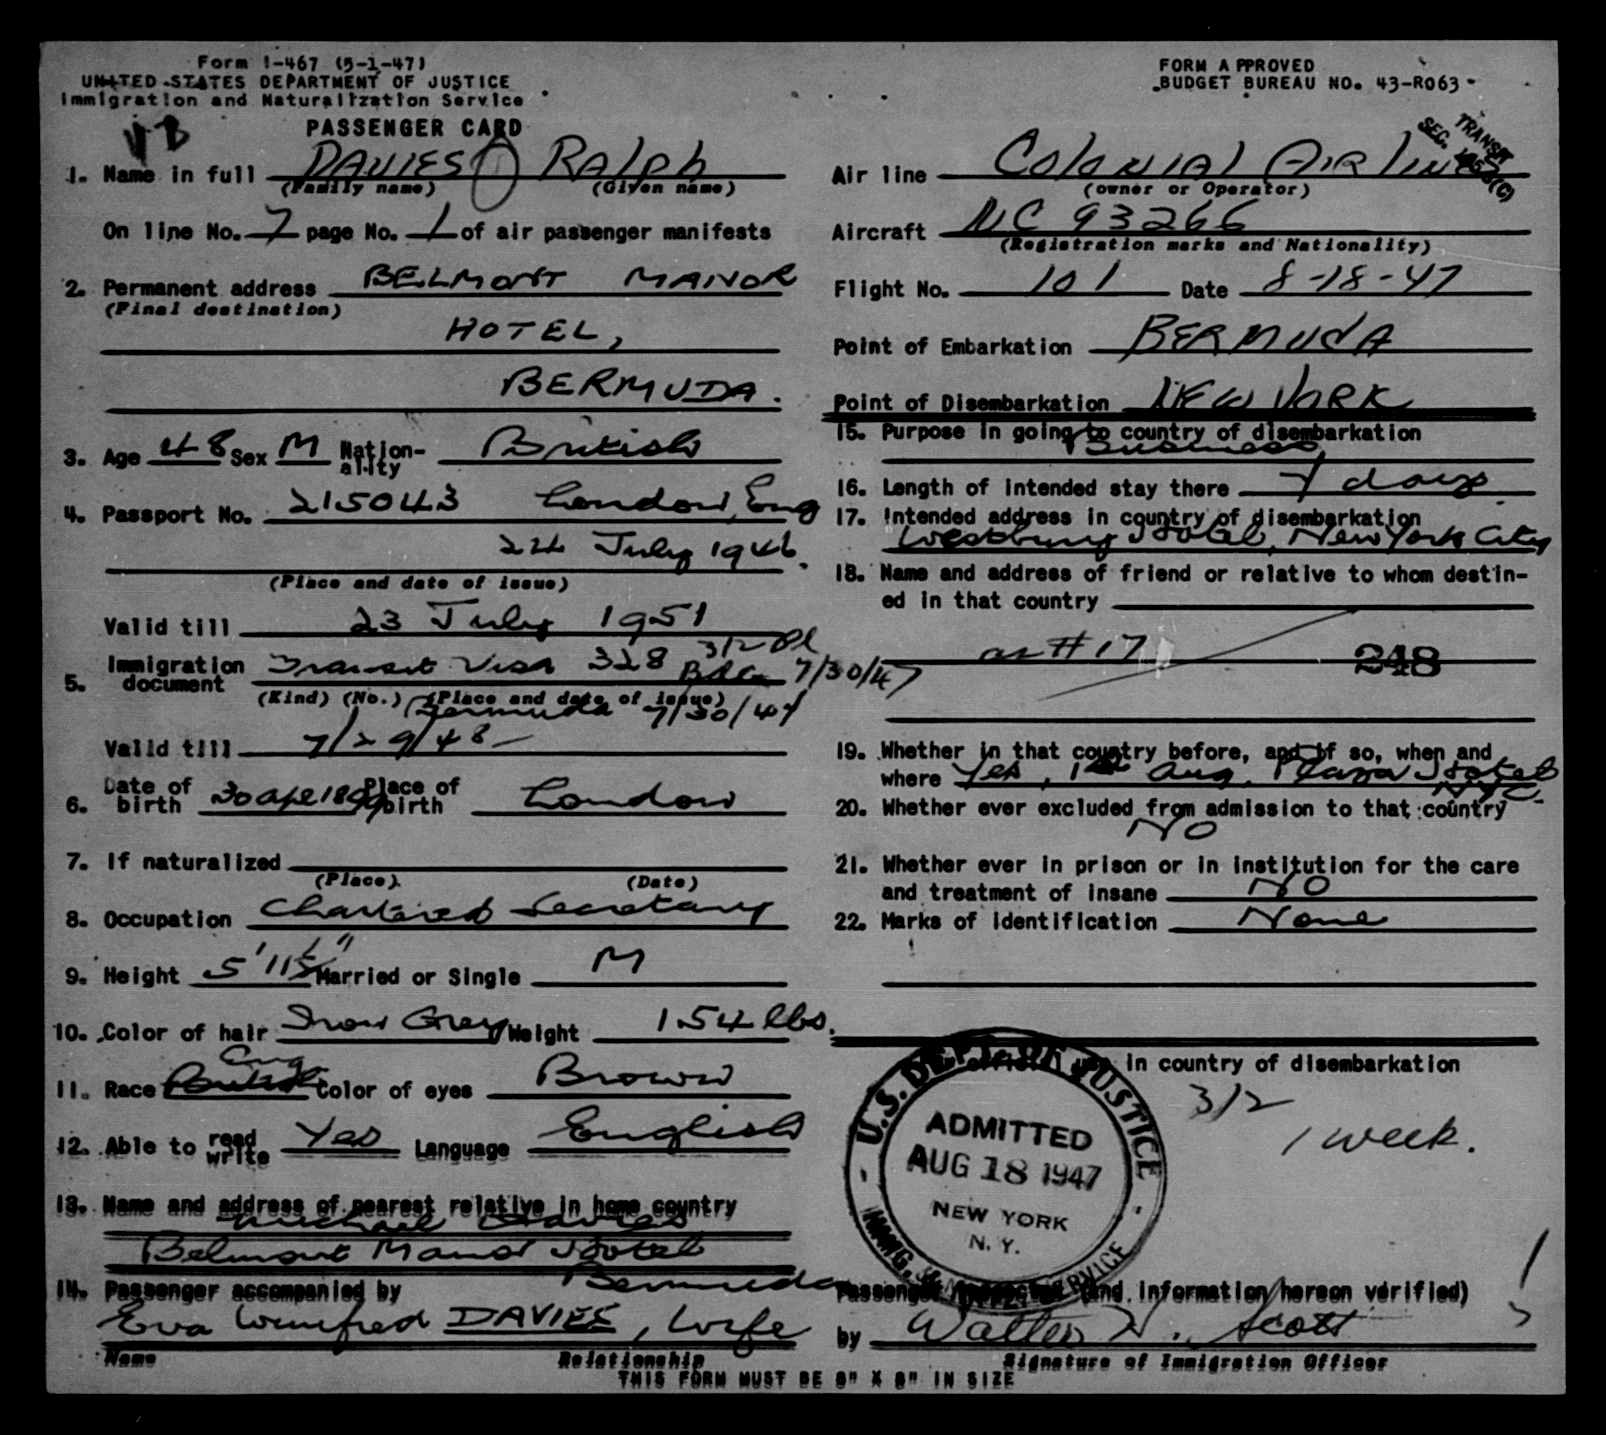 Form I-467 (5-1-47)
UNITED STATES DEPARTMENT OF JUSTICE
Immigration and Naturalization Service
PASSENGER CARD
1. Name in full DAVIES Ralph
(Family name) (Given name)
On line No. 7 page No. 1 of air passenger manifests
2. Permanent address BELMONT MANOR
(Final destination)
HOTEL,
BERMUDA.
3. Age 48 Sex M Nation-ality British
4. Passport No. 215043 London, Eng
24 July 1946.
(Place and date of issue)
Valid till 23 July 1951
5. Immigration document Transit Visa 328 3/2 Bda 7/30/47
(Kind) (No.) (Place and date of issue)
Bermuda 7/30/47
Valid till 7/29/48
6. Date of birth 30 Apr 1899 Place of birth London
7. If naturalized
(Place) (Date)
8. Occupation Chartered Secretary
9. Height 5'11½" Married or Single M
10. Color of hair Iron Grey Weight 154 lbs.
11. Race British Eng Color of eyes Brown
12. Able to read write Yes Language English
13. Name and address of nearest relative in home country
Michael Davies
Belmont Manor Hotel
Bermuda
14. Passenger accompanied by
Eva Winifred DAVIES, Wife
Name Relationship
THIS FORM MUST BE 8" X 8" IN SIZE
FORM APPROVED
BUDGET BUREAU NO. 43-R063
TRANSIT
Air line Colonial AIRlines
(owner or Operator)
Aircraft NC 93266
(Registration marks and Nationality)
Flight No. 101 Date 8-18-47
Point of Embarkation BERMUdA
Point of Disembarkation NEW YORK
15. Purpose in going to country of disembarkation
Business
16. Length of intended stay there 7 days
17. Intended address in country of disembarkation
Westbury Hotel, New York City
18. Name and address of friend or relative to whom destin-
ed in that country
as #17 248
19. Whether in that country before, and if so, when and
where Yes, 1st Aug. Plaza Hotel
NYC.
20. Whether ever excluded from admission to that country
NO
21. Whether ever in prison or in institution for the care
and treatment of insane NO
22. Marks of identification None
official use in country of disembarkation
3/2
1 week.
U.S. DEPT. OF JUSTICE
ADMITTED
AUG 18 1947
NEW YORK
N. Y.
IMMIG. & NATZ. SERVICE
Passenger inspected (and information hereon verified)
by Walter H. Scott
Signature of Immigration Officer